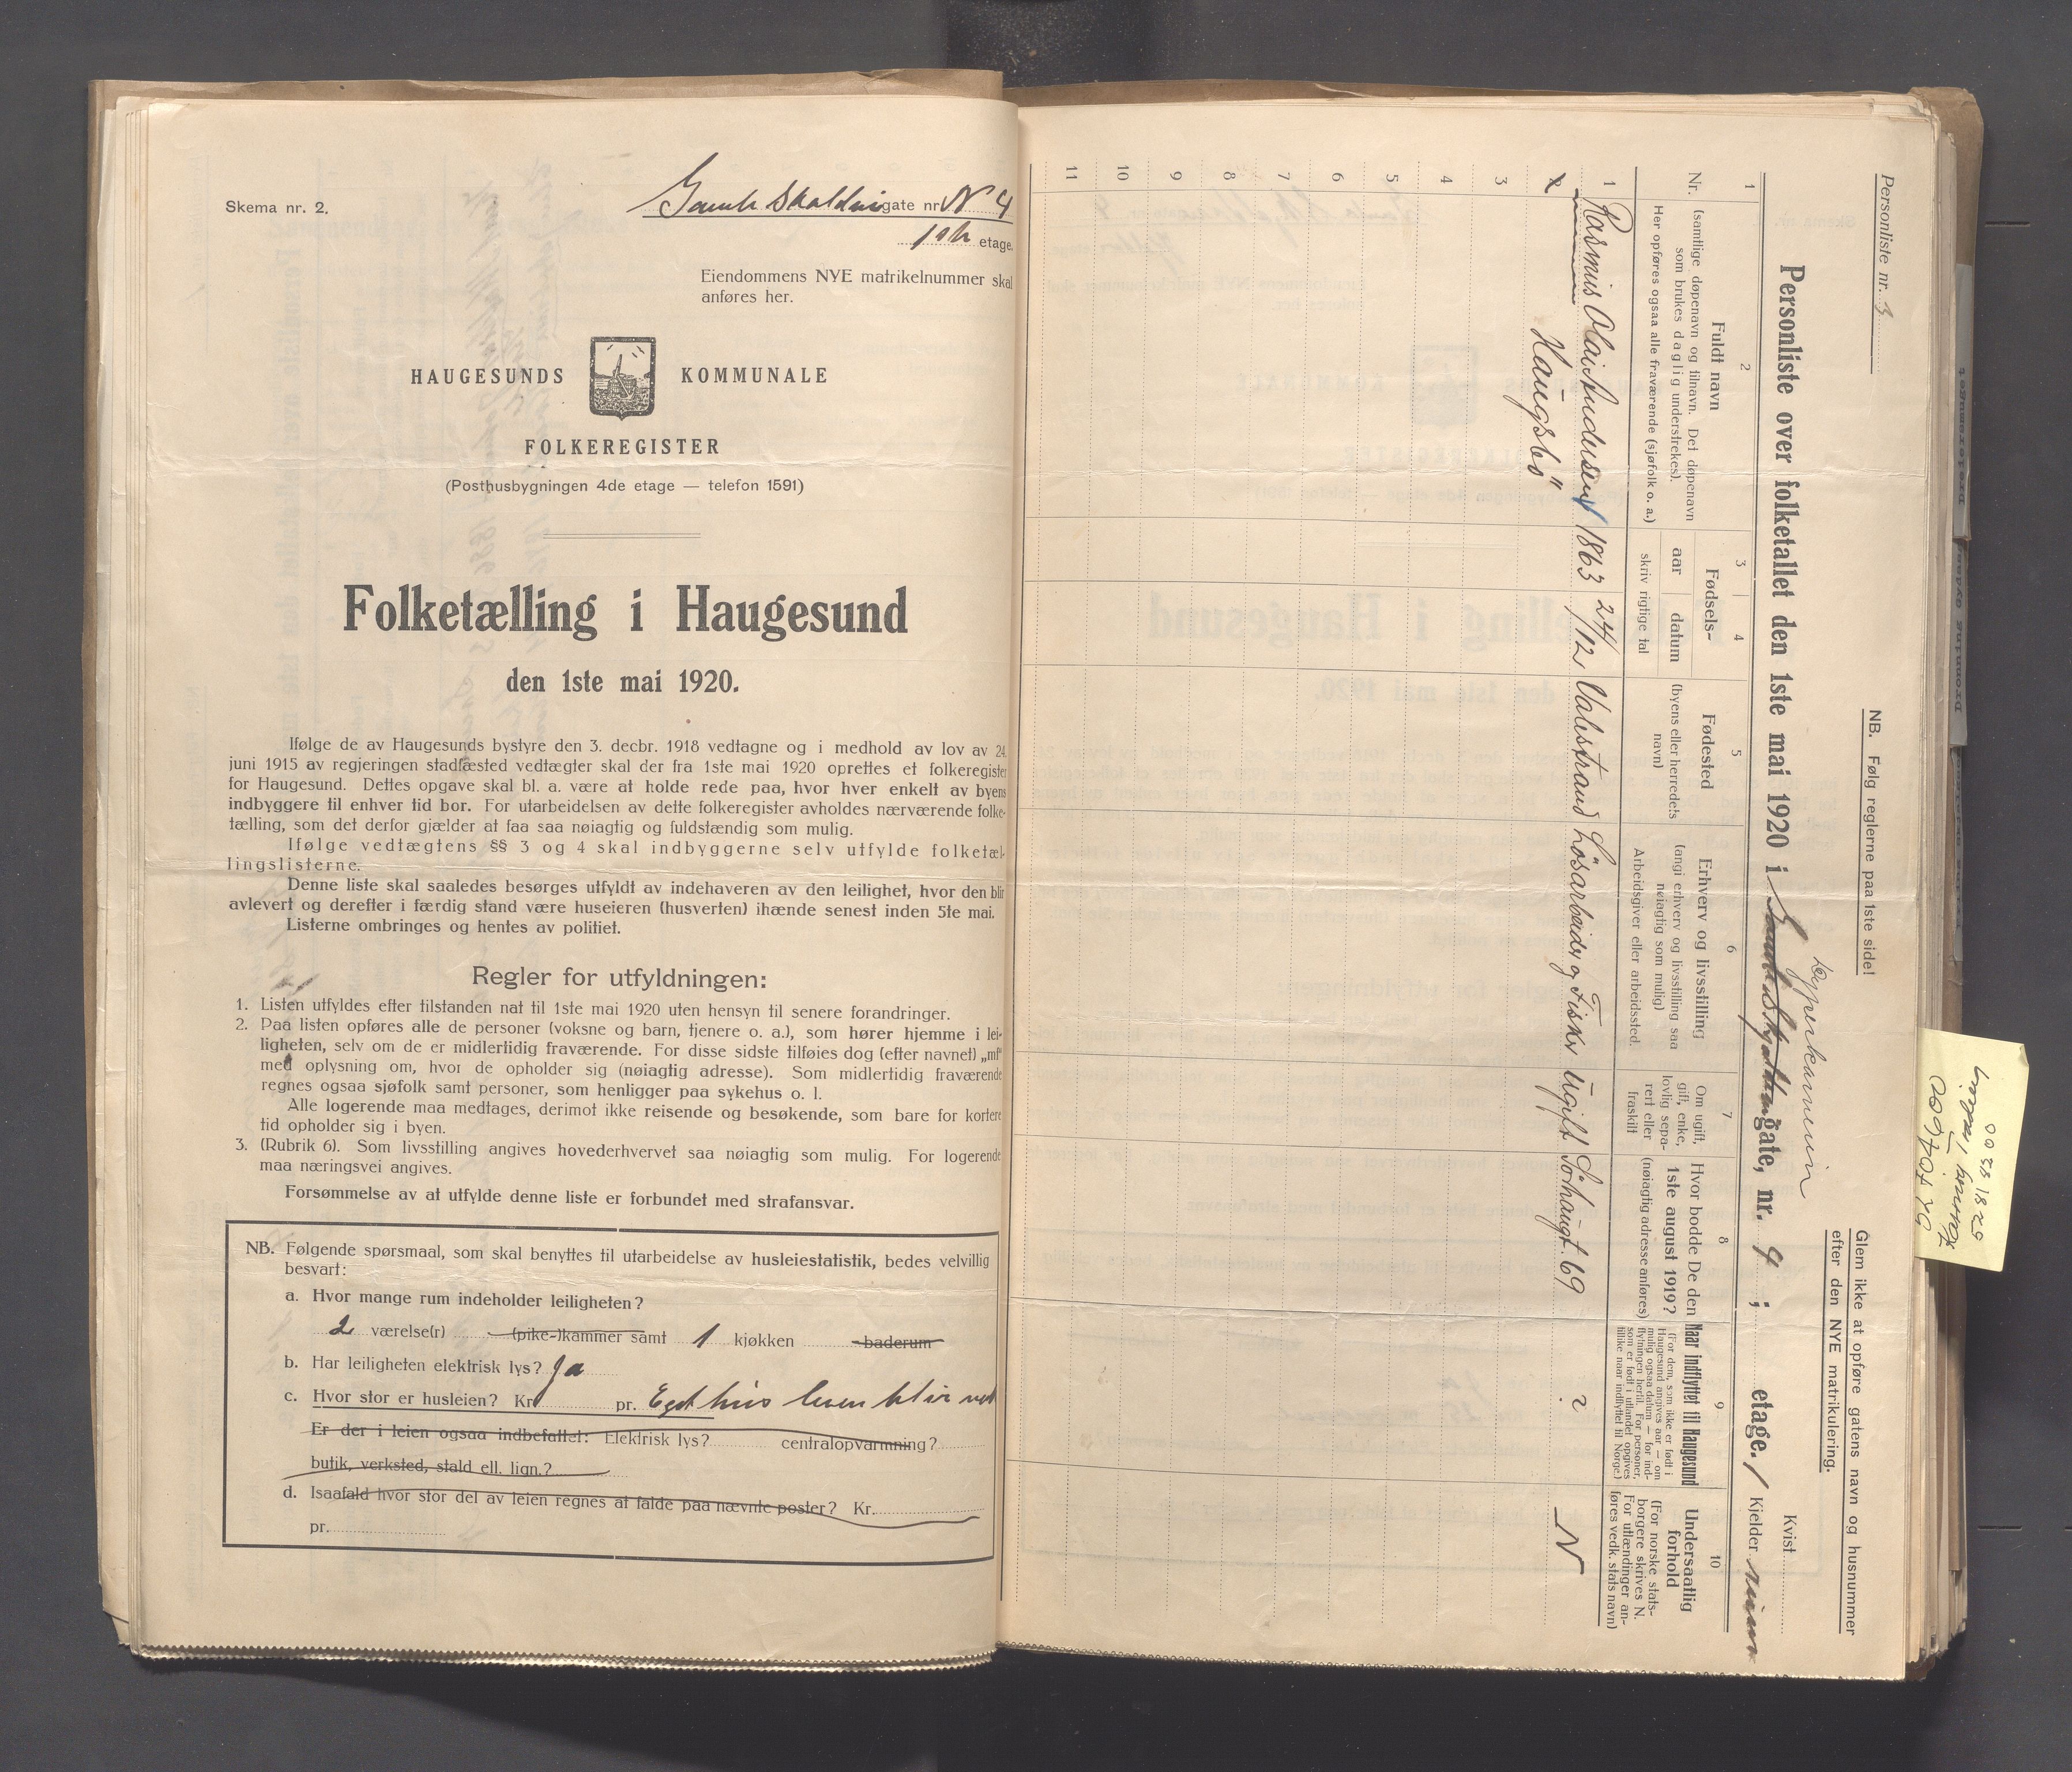 Skema nr. 2.
gate nr. N 9
1ste etage.
Eiendommens NYE matrikelnummer skal
anføres her.
HAUGESUNDS KOMMUNALE
FOLKEREGISTER
(Posthusbygningen 4de etage — telefon 1591)
Folketælling i Haugesund
den 1ste mai 1920.
Ifølge de av Haugesunds bystyre den 3. decbr. 1918 vedtagne og i medhold av lov av 24.
juni 1915 av regjeringen stadfæsted vedtægter skal der fra 1ste mai 1920 oprettes et folkeregister
for Haugesund. Dettes opgave skal bl. a. være at holde rede paa, hvor hver enkelt av byens
indbyggere til enhver tid bor. For utarbeidelsen av dette folkeregister avholdes nærværende folke-
tælling, som det derfor gjælder at faa saa nøiagtig og fuldstændig som mulig.
Ifølge vedtægtens §§ 3 og 4 skal indbyggerne selv utfylde folketæl-
lingslisterne.
Denne liste skal saaledes besørges utfyldt av indehaveren av den leilighet, hvor den blir
avlevert og derefter i færdig stand være huseieren (husverten) ihænde senest inden 5te mai.
Listerne ombringes og hentes av politiet.
Regler for utfyldningen:
1. Listen utfyldes efter tilstanden nat til 1ste mai 1920 uten hensyn til senere forandringer.
2. Paa listen opføres alle de personer (voksne og barn, tjenere o. a.), som hører hjemme i lei-
ligheten, selv om de er midlertidig fraværende. For disse sidste tilføies dog (efter navnet) „mf"
med oplysning om, hvor de opholder sig (nøiagtig adresse). Som midlertidig fraværende
regnes ogsaa sjøfolk samt personer, som henligger paa sykehus o. l.
Alle logerende maa medtages, derimot ikke reisende og besøkende, som bare for kortere
tid opholder sig i byen.
3. (Rubrik 6). Som livsstilling angives hovederhvervet saa nøiagtig som mulig. For logerende
maa næringsvei angives.
Forsømmelse av at utfylde denne liste er forbundet med strafansvar.
NB. Følgende spørsmaal, som skal benyttes til utarbeidelse av husleiestatistik, bedes velvillig
besvart:
a. Hvor mange rum indeholder leiligheten?
2 værelse(r) (pike-)kammer samt 1 kjøkken baderum
b. Har leiligheten elektrisk lys? Ja
c. Hvor stor er husleien? Kr. pr. Eget hus
Er der i leien ogsaa indbefattet: Elektrisk lys? centralopvarmning?
butik, verksted, stald ell. lign.?
d. Isaafald hvor stor del av leien regnes at falde paa nævnte poster? Kr.
pr.
Personliste nr. 3
NB. Følg reglerne paa 1ste side!
Glem ikke at opføre gatens navn og husnummer
efter den NYE matrikulering.
Personliste over folketallet den 1ste mai 1920 i gate, nr. 9 ; etage. 1
Kvist
Kjelder
1 2 3 4 5 6 7 8 9 10
Nr.
Fuldt navn
(samtlige døpenavn og tilnavn. Det døpenavn
som brukes daglig understrekes).
Her opføres ogsaa alle fraværende (sjøfolk o. a.)
Fødsels-
aar datum
skriv rigtige tal
Fødested
(byens eller herredets
navn)
Erhverv og livsstilling
(angi erhverv og livsstilling saa
nøiagtig som mulig)
Arbeidsgiver eller arbeidssted.
Om ugift,
gift, enke,
lovlig sepa-
rert eller
fraskilt
Hvor bodde De den
1ste august 1919?
(nøiagtig adresse anføres)
Naar indflyttet til Haugesund
(For dem, som ikke er født i
Haugesund angives aar — om
mulig ogsaa datum — for ind-
flytningen hertil. For personer,
som er født i utlandet opgives
tillike naar indflyttet til Norge.)
Undersaatlig
forhold
(For norske stats-
borgere skrives N.
For utlændinger an-
føres vedk. stats navn)
1 Rasmus Olai Knudsen 1863 24/12 Valestrand Løsarbeider og Fisker Ugift Sørhaugt. 69 ? N
2 Haugsbø"
3
4
5
6
7
8
9
10
11